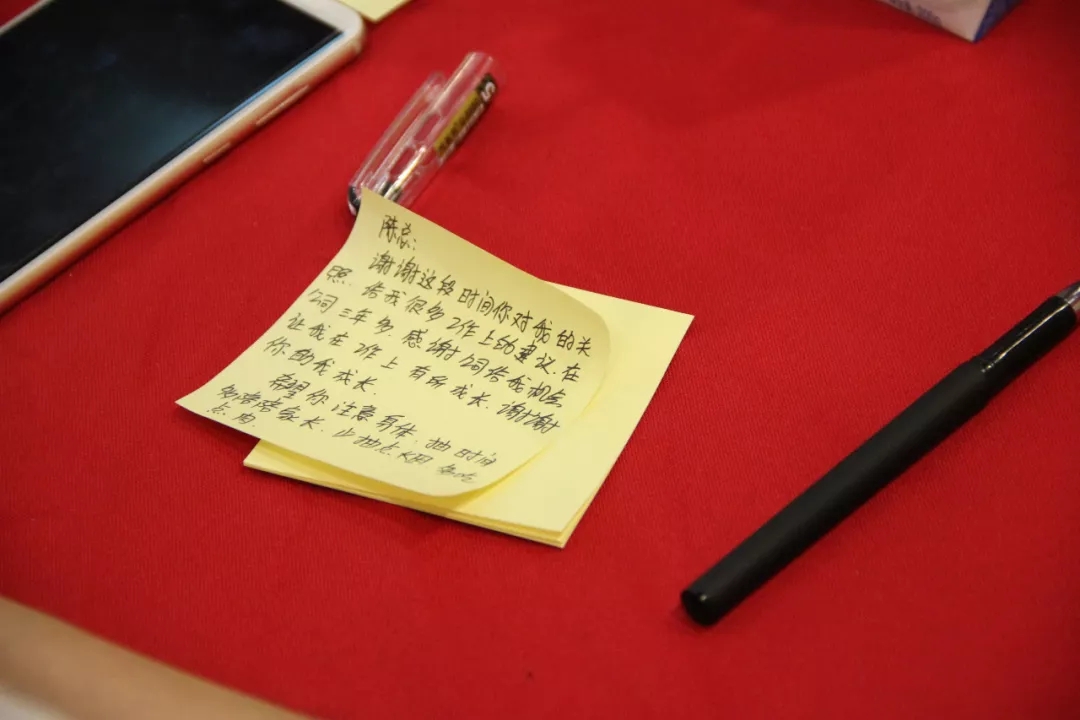 陈总：
谢谢这段时间你对我的关
照. 给我很多工作上的建议. 在
公司三年多. 感谢公司给我机会
让我在工作上有所成长. 谢谢
你助我成长.
希望你注意身体. 抽时间
多陪陪家长. 少抽点烟 多吃
点肉.